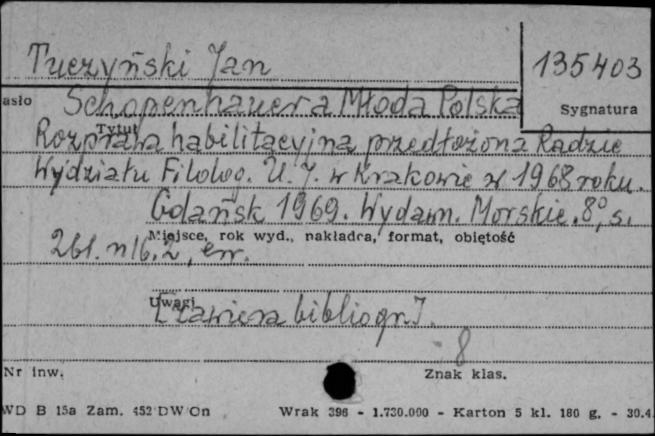 Tuczyński Jan
135403
asło
Schopenhauer a Młoda Polska
Sygnatura
Tytuł
Rozprawa habilitacyjna przedłożona Radzie
Wydziału Filolog. U. J. w Krakowie w 1968 roku.
Gdańsk 1969. Wydawn. Morskie. 8°, s.
Miejsce, rok wyd., nakładca, format, objętość
261. nlb. 2, err.
Uwagi
[Zawiera bibliogr].
8
Nr inw.
Znak klas.
WD B 15a Zam. 452 DW On Wrak 396 - 1.730.000 - Karton 5 kl. 180 g. - 30.4